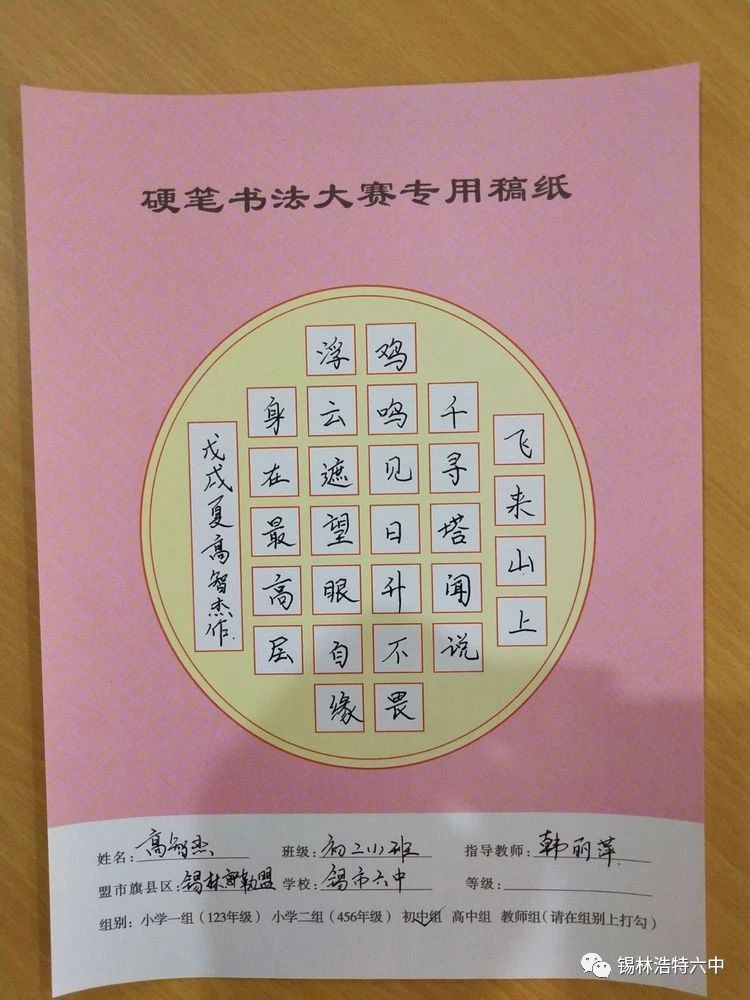 硬笔书法大赛专用稿纸
飞来山上
千寻塔闻说
鸡鸣见日升不畏
浮云遮望眼自缘
身在最高层
戊戌夏高智杰作
姓名:高智杰 班级:初二 班 指导教师:韩丽萍
盟市旗县区:锡林郭勒盟 学校:锡市六中 等级:
组别:小学一组(123年级) 小学二组(456年级) 初中组 高中组 教师组(请在组别上打勾)
锡林浩特六中